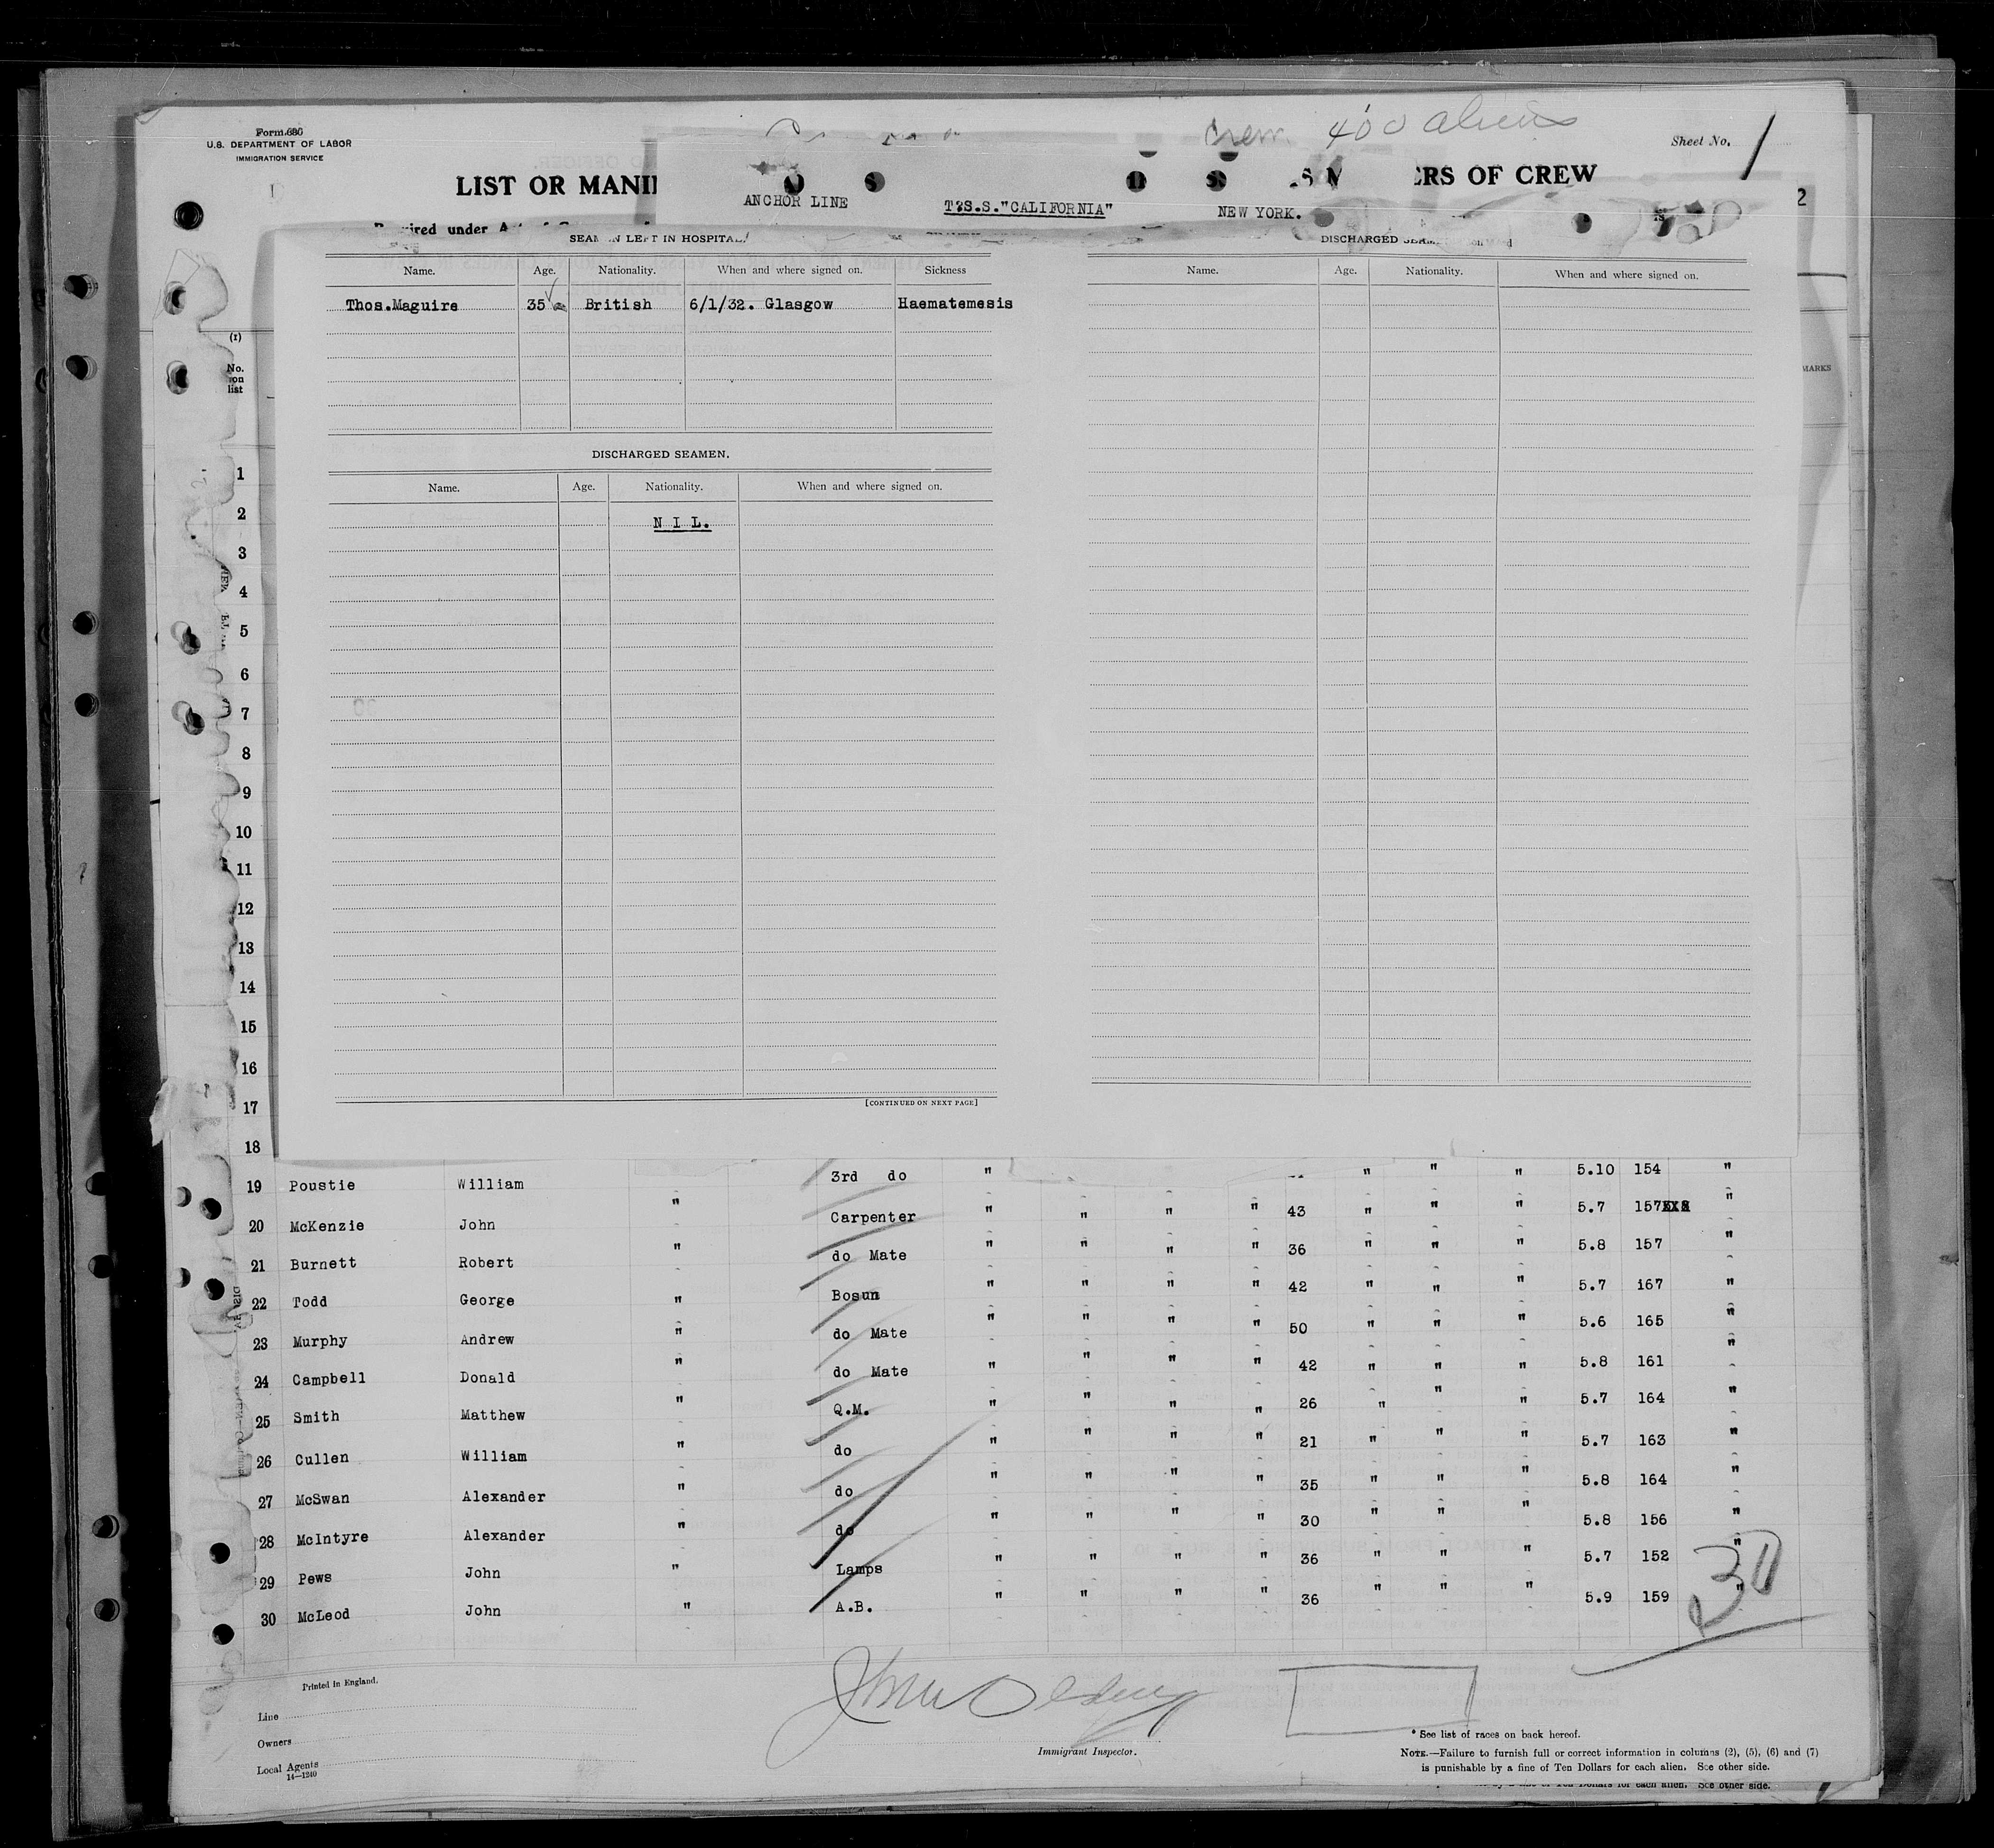 Form 680
U.S. DEPARTMENT OF LABOR
IMMIGRATION SERVICE
Crew 400 aliens
Sheet No. 1
LIST OR MANI ERS OF CREW
ANCHOR LINE T.S.S."CALIFORNIA" NEW YORK.
ired under
2
SEAMEN LEFT IN HOSPITAL
Name. Age. Nationality. When and where signed on. Sickness
Thos.Maguire 35 British 6/1/32. Glasgow Haematemesis
DISCHARGED SEAMEN.
Name. Age. Nationality. When and where signed on.
N I L.
[CONTINUED ON NEXT PAGE]
DISCHARGED
Name. Age. Nationality. When and where signed on.
MARKS
(1)
No.
on
list
1
2
3
4
5
6
7
8
9
10
11
12
13
14
15
16
17
18
19 Poustie William 3rd do " " " " 5.10 154 "
20 McKenzie John " Carpenter " " " " 43 " " " 5.7 157 "
21 Burnett Robert " do Mate " " " " 36 " " " 5.8 157 "
22 Todd George " Bosun " " " " 42 " " " 5.7 167 "
23 Murphy Andrew " do Mate " " " " 50 " " " 5.6 165 "
24 Campbell Donald " do Mate " " " " 42 " " " 5.8 161 "
25 Smith Matthew " Q.M. " " " " 26 " " " 5.7 164 "
26 Cullen William " do " " " " 21 " " " 5.7 163 "
27 McSwan Alexander " do " " " " 35 " " " 5.8 164 "
28 McIntyre Alexander " do " " " " 30 " " " 5.8 156 "
29 Pews John " Lamps " " " " 36 " " " 5.7 152 "
30 McLeod John " A.B. " " " " 36 " " " 5.9 159 "
30
Printed in England.
Line
Owners
Local Agents
14—1240
Immigrant Inspector.
* See list of races on back hereof.
NOTE.—Failure to furnish full or correct information in columns (2), (5), (6) and (7)
is punishable by a fine of Ten Dollars for each alien. See other side.
of Ten Dollars for each alien. See other side.